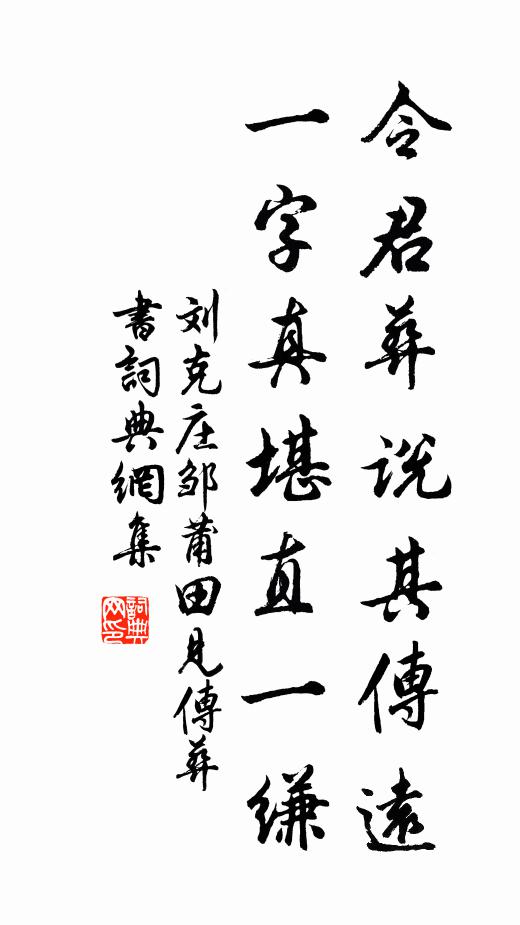 令君彝说其傳遠
一字真堪直一縑
刘克庄邹莆田見傳彝
書詞典網集
詞典網印